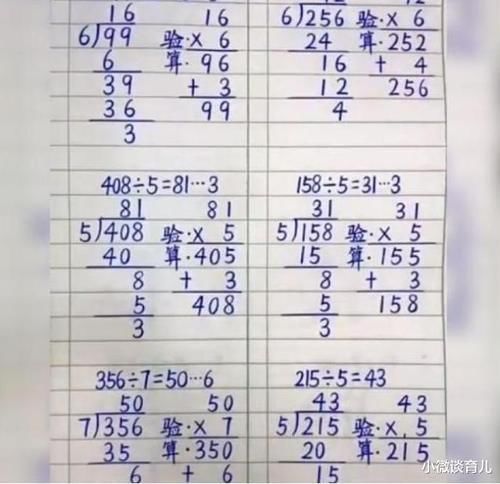 16 16
6)99 验·× 6
6 算·96
39 + 3
36 99
3
6)256 验·× 6
24 算·252
16 + 4
12 256
4
408÷5=81…3
81 81
5)408 验·× 5
40 算·405
8 + 3
5 408
3
158÷5=31…3
31 31
5)158 验·× 5
15 算·155
8 + 3
5 158
3
356÷7=50…6
50 50
7)356 验·× 7
35 算·350
6 + 6
215÷5=43
43 43
5)215 验·× 5
20 算·215
15
小微谈育儿